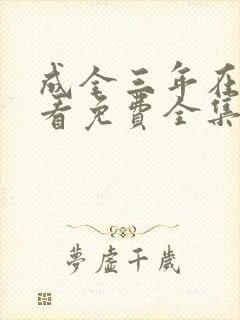 成全三年在
看免费全集
夢虛千歲